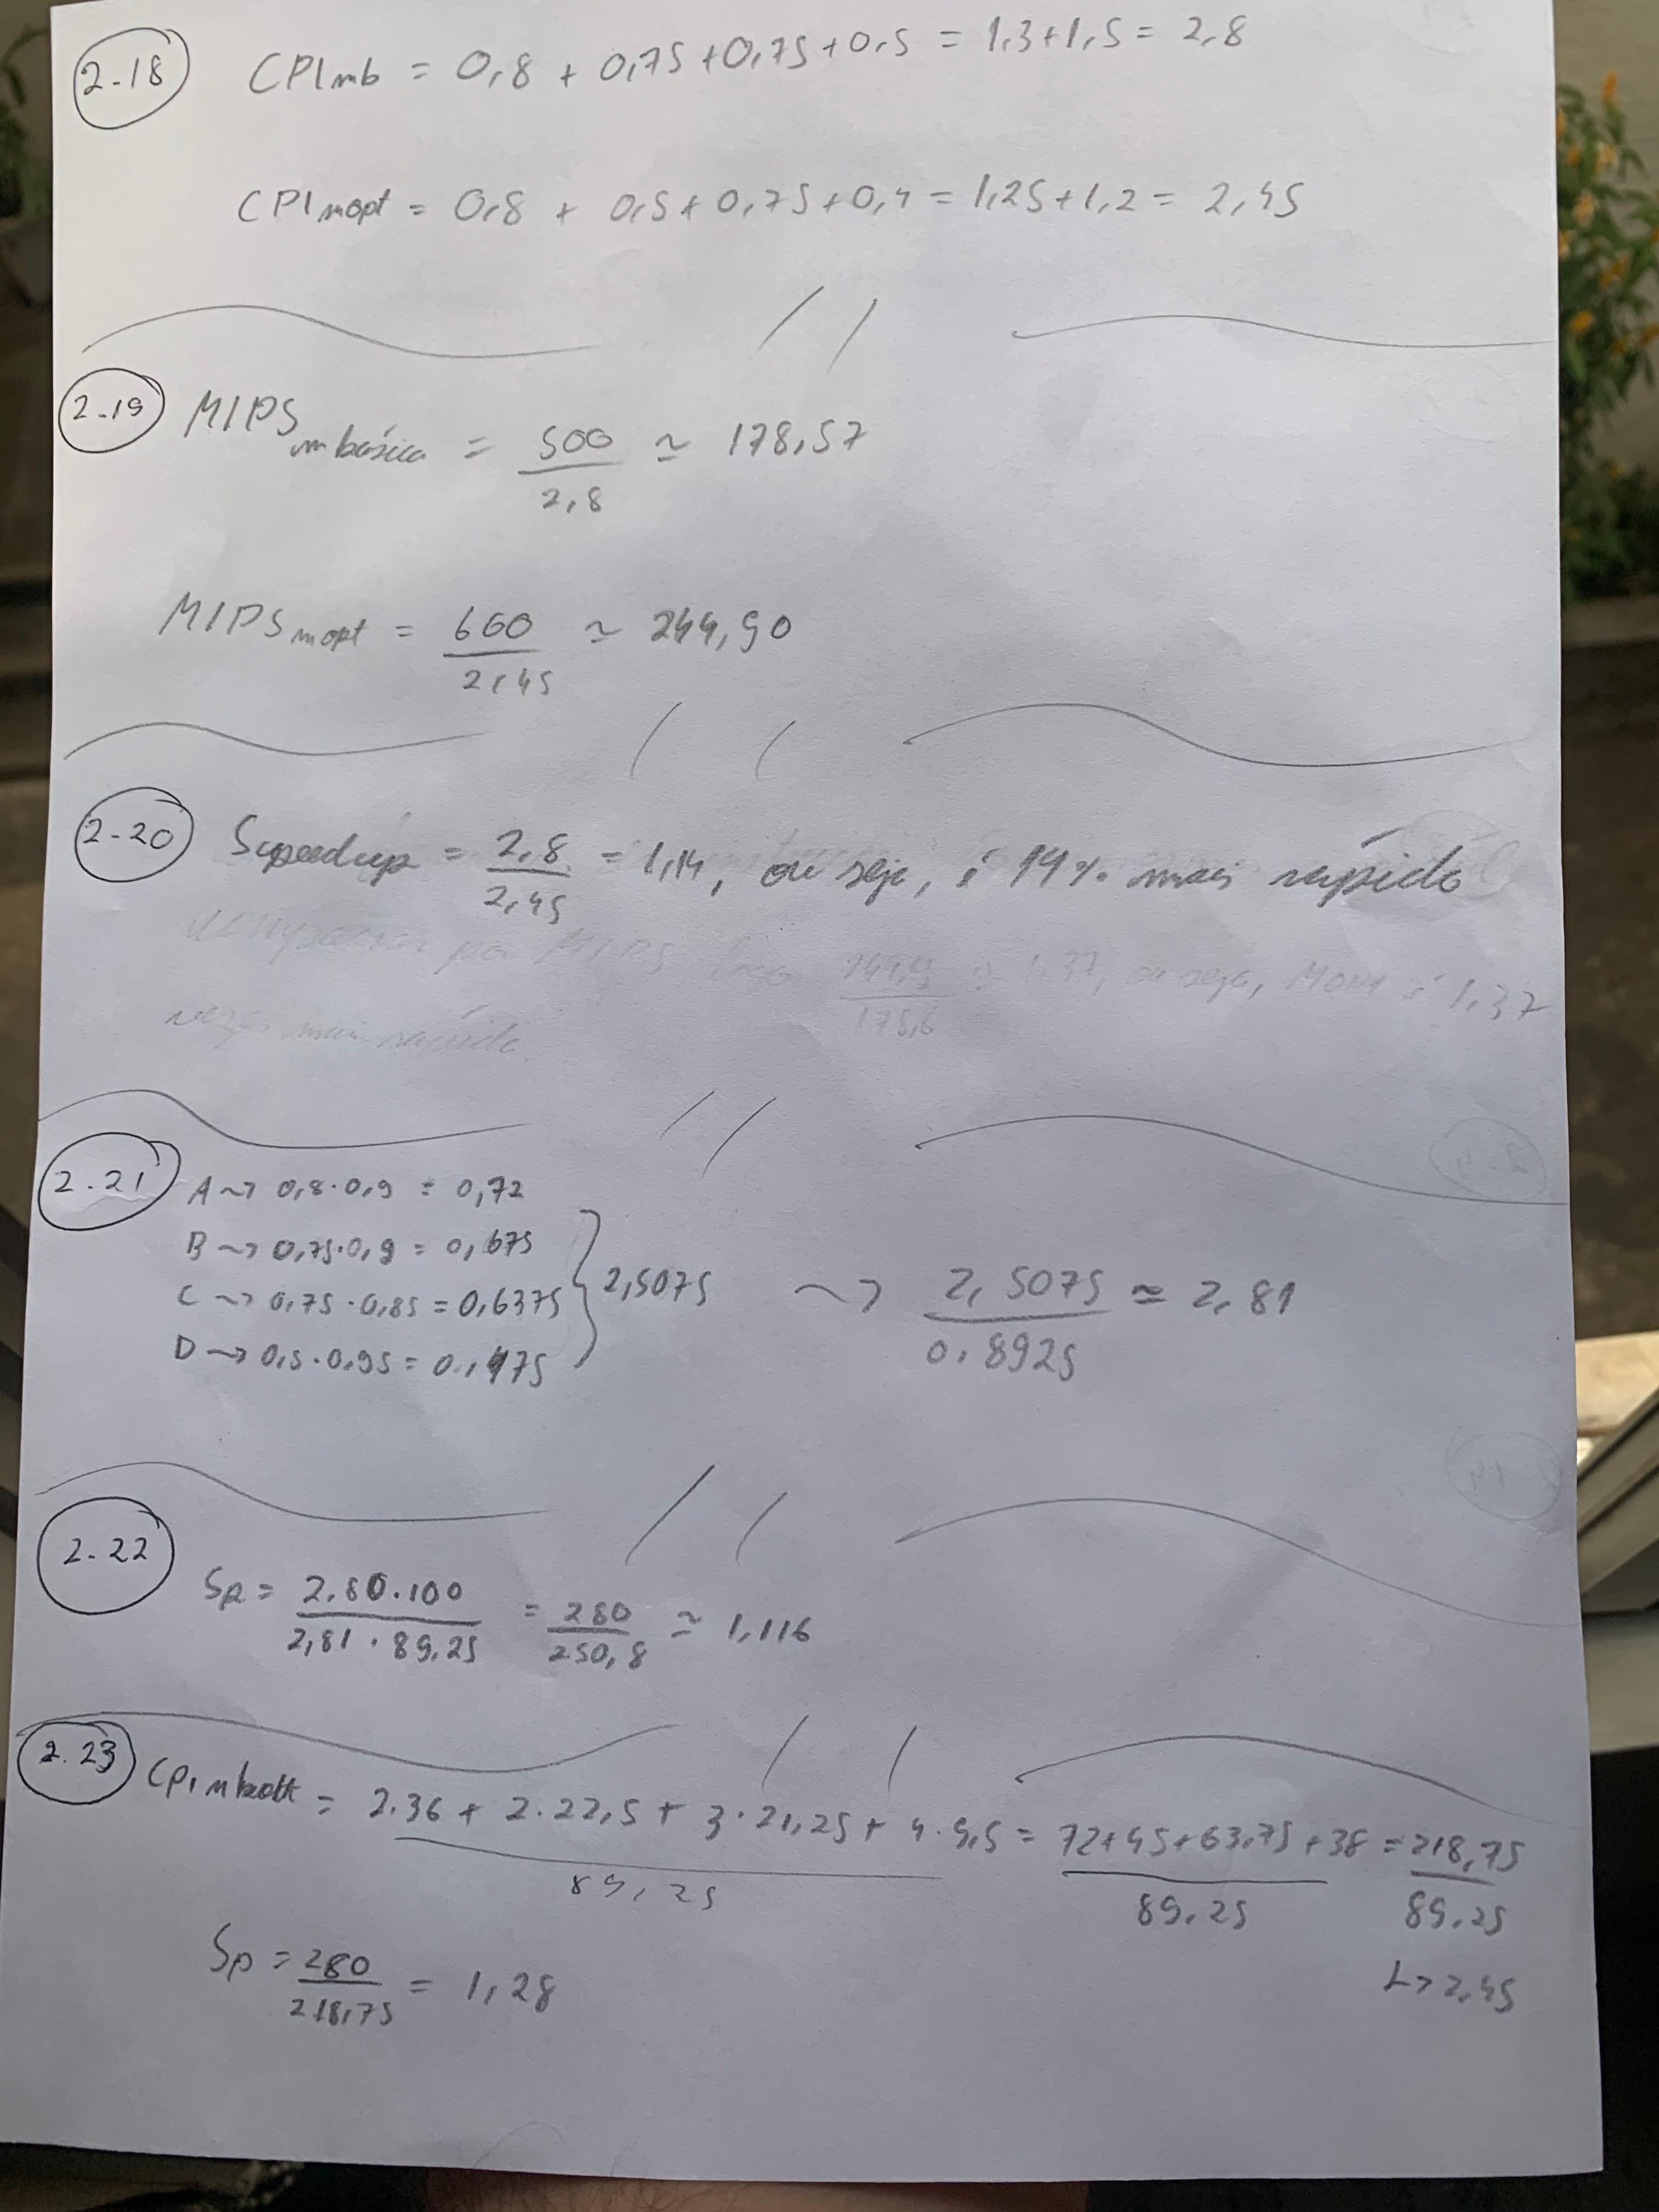 2-18 CPI mb = 0,8 + 0,75 + 0,75 + 0,5 = 1,3 + 1,5 = 2,8
CPI mopt = 0,8 + 0,5 + 0,75 + 0,4 = 1,25 + 1,2 = 2,45
2-19 MIPS m básica = 500/2,8 ≃ 178,57
MIPS mopt = 600/2,45 ≃ 244,90
2-20 Speedup = 2,8/2,45 = 1,14, ou seja, é 14% mais rápido
por MIPS logo 244,9/178,6 ≃ 1,37, ou seja, Mopt é 1,37
vezes mais rápido.
2.21 A ~> 0,8 · 0,9 = 0,72
B ~> 0,75 · 0,9 = 0,675
C ~> 0,75 · 0,85 = 0,6375
D ~> 0,5 · 0,95 = 0,475
} 2,5075 ~> 2,5075/0,8925 ≃ 2,81
2-22 Sp = 2,80 · 100/2,81 · 89,25 = 280/250,8 ≃ 1,116
2.23 = 2·36 + 2·22,5 + 3·21,25 + 4·9,5/89,25 = 72+45+63,75+38/89,25 = 218,75/89,25
↳ 2,45
Sp = 280/218,75 = 1,28